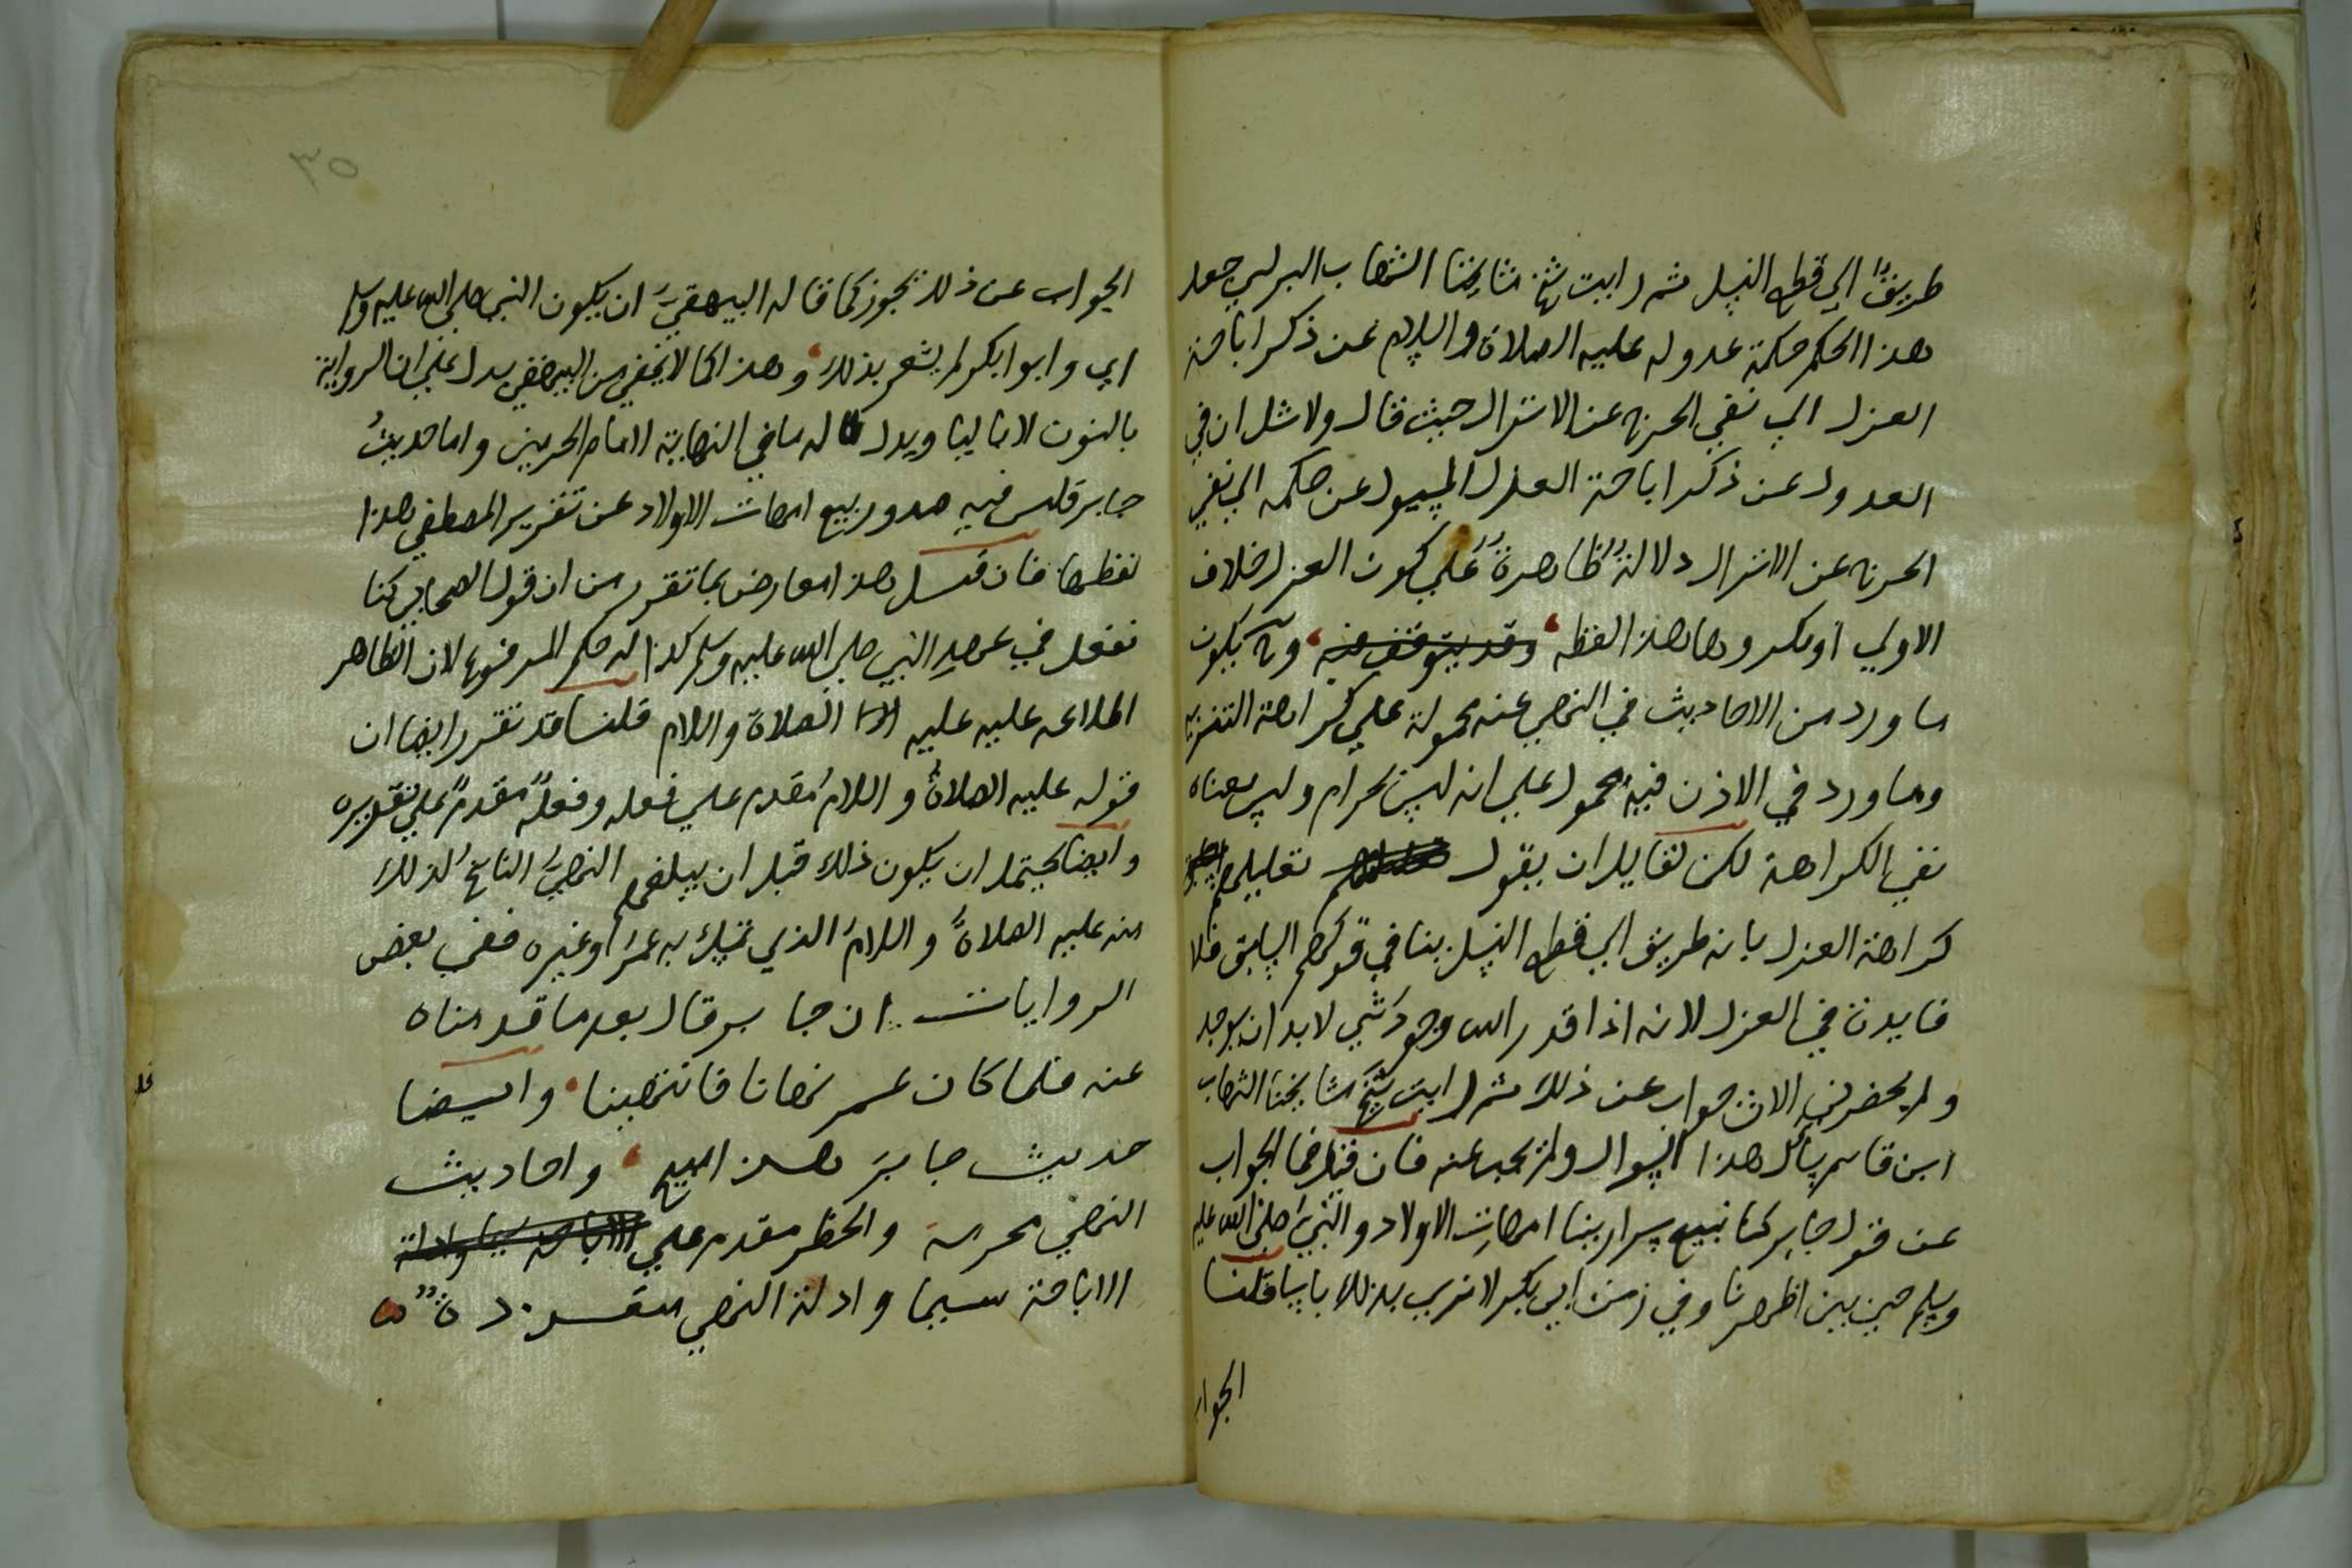 طريقا الي قطع النسل ثم رايت شيخ مشايخنا الشهاب البرلسي جعل
هذا الحكم حكمة عدوله عليه الصلاة والسلام عن ذكر اباحة
العزل الي نفي الحرج عن الانزال حيث قال ولا شك ان في
العدول عن ذكر اباحة العزل المسيول عن حكمه الي نفي
الحرج عن الانزال دلالة ظاهرة علي كون العزل خلاف
الاولي او مكروها هذا لفظه وقد يتوقف فيه وح يكون
ما ورد من الاحاديث في النهي عنه محمولة علي كراهة التنزيه
وما ورد في الاذن فيه محمول علي انه ليس بحرام وليس معناه
نفي الكراهة لكن لقايل ان يقول تعليلهم
كراهة العزل بانه طريق الي قطع النسل ينافي قولهم السابق فلا
فايدة في العزل لانه اذا قدر الله وجود شي لا بد ان يوجد
ولم يحضرني الان جواب عن ذلك ثم رايت شيخ مشايخنا الشهاب
ابن قاسم سال هذا السوال ولم يجب عنه فان قيل فما الجواب
عن قول جابر كنا نبيع سرارينا امهات الاولاد والنبي صلي الله عليه
وسلم حي بين اظهرنا وفي زمن ابي بكر لا نري بذلك باسا قلنا
الجواب
٣٥
الجواب عن ذلك يجوز كما قاله البيهقي ان يكون النبي صلي الله عليه وسلم
اي وابوا بكر لم يشعر بذلك وهذا كما لا يخفي من البيهقي يدل علي ان الرواية
بالنون لا بالياء ويدل له ما في النهاية لامام الحرمين واما حديث
جابر فليس فيه صدور بيع امهات الاولاد عن تقرير المصطفي هذا
لفظها فان قيل هذا معارض بما تقرر من ان قول الصحابي كنا
نفعل في عهد النبي صلي الله عليه وسلم كذا له حكم المرفوع لان الظاهر
اطلاعه عليه عليه الصلاة والسلام قلنا قد تقرر ايضا ان
قوله عليه الصلاة والسلام مقدم علي فعله وفعله مقدم علي تقريره
وايضا يحتمل ان يكون ذلك قبل ان يبلغهم النهي الناسخ لذلك
منه عليه الصلاة والسلام الذي تمسك به عمر وغيره ففي بعض
الروايات ان جابر قال بعد ما قدمناه
عنه فلما كان عمر نهانا فانتهينا وايضا
حديث جابر هذا مبيح واحاديث
النهي محرمة والحظر مقدم علي الاباحة سيما وادلة
الاباحة سيما وادلة النهي